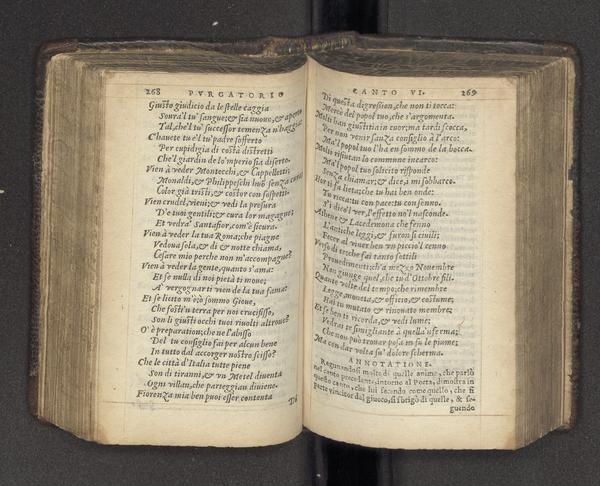 268 PVRGATORIO
Giusto giudicio da le stelle caggia
Soura'l tu' sangue; & sia nuouo, & aperto
Tal, che'l tu' successor temenza n'haggia:
C'hauete tu e'l tu' padre sofferto
Per cupidigia di costà distretti
Che'l giardin de lo'mperio sia diserto.
Vien à veder Montecchi, & Cappelletti;
Monaldi, & Philippeschi huō senza cura
Color già tristi, & costor con sospetti.
Vien crudel, vieni; & vedi la presura
D'e tuoi gentili; & cura lor magagne;
Et vedra' Santafior, com'è sicura.
Vien à veder la tua Roma; che piagne
Vedoua sola, & dì & notte chiama,
Cesare mio perche non m'accompagne?
Vien à veder la gente, quanto s'ama:
Et se nulla di noi pietà ti moue;
A' vergognarti vien de la tua fama:
Et se licito m'è ò sommo Gioue,
Che fosti'n terra per noi crucifisso,
Son li giusti occhi tuoi riuolti altroue?
O' è preparation; che ne l'abisso
Del tu consiglio fai per alcun bene
In tutto dal accorger nostro scisso?
Che le città d'Italia tutte piene
Son di tiranni, & vn Metel diuenta
Ogni villan, che parteggian diuiene.
Fiorenza mia ben puoi esser contenta
Di
CANTO VI. 269
Di questa digression, che non ti tocca:
Mercè del popol tuo, che s'argomenta.
Molti han giustitia in cuor; ma tardi scocca,
Per non venir sanza consiglio à l'arco:
Ma'l popol tuo l'ha en sommo de la bocca.
Molti rifiutan lo commune incarco:
Ma'l popol tuo solicito risponde
Senza chiamar; & dice, i mi sobbarco.
Hor ti fa lieta; che tu hai ben onde:
Tu ricca: tu con pace: tu con senno.
S'i dico'l ver, l'effetto no'l nasconde.
Athene & Lacedemona che fenno
L'antiche leggi, & furon si ciuili;
Fecer al viuer ben vn piccol cenno
Verso di te: che fai tanto sottili
Prouedimenti; ch'a mezzo Nouembre
Non giunge quel, che tu d'Ottobre fili.
Quante volte del tempo; che rimembre
Legge, moneta, & officio, & costume;
Hai tu mutato & rinouato membre;
Et se ben ti ricorda, & vedi lume;
Vedrai te simigliante à quella nferma;
Che non può trouar posa in su le piume;
Ma con dar volta su' dolore scherma.
ANNOTATIONE.
Ragunandosi molte di quelle anime, che parlò
nel canto precedente, intorno al Poeta, dimostra in
questo canto, che lui fece come quello, che si
parte vincitor dal giuoco, si sbrigò di quelle, & se-
guendo